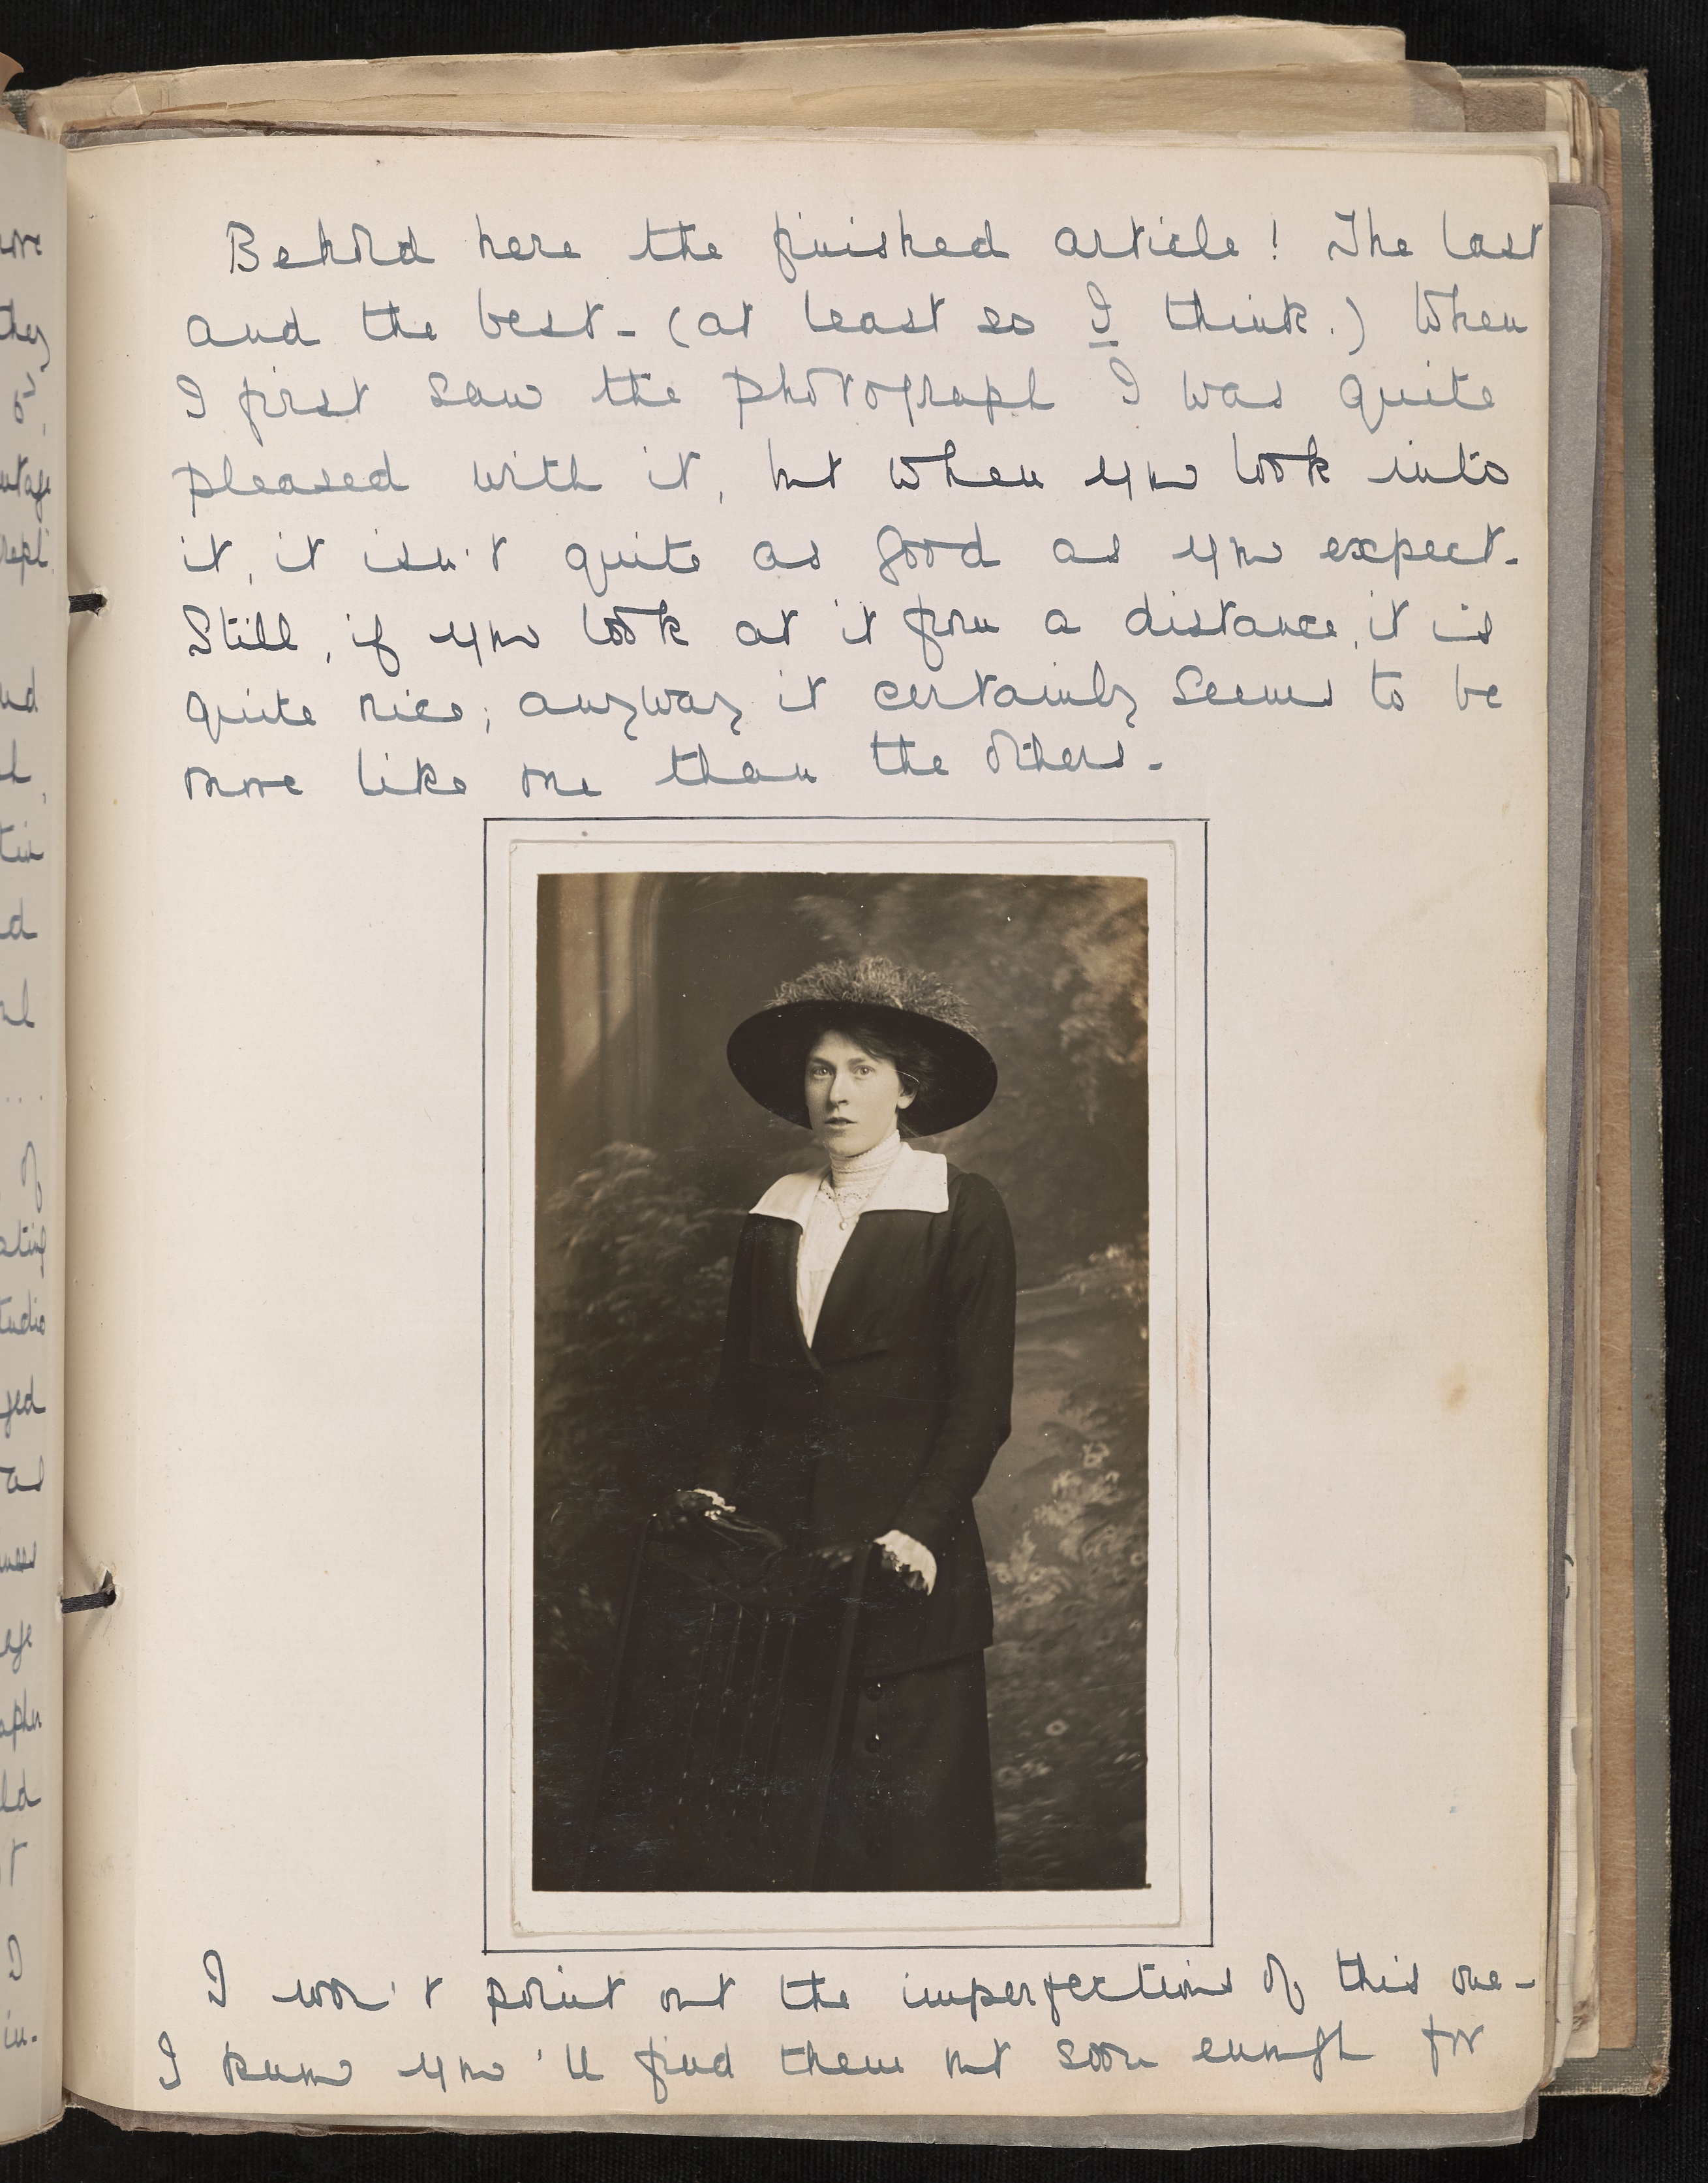 Behold here the finished article! The last
and the best - (at least so I think.) When
I first saw the photograph I was quite
pleased with it, but when you look into
it, it isn't quite as good as you expect.
Still, if you look at it from a distance, it is
quite nice; anyway it certainly seems to be
more like me than the others.
I won't point out the imperfections of this one -
I know you'll find them out soon enough for